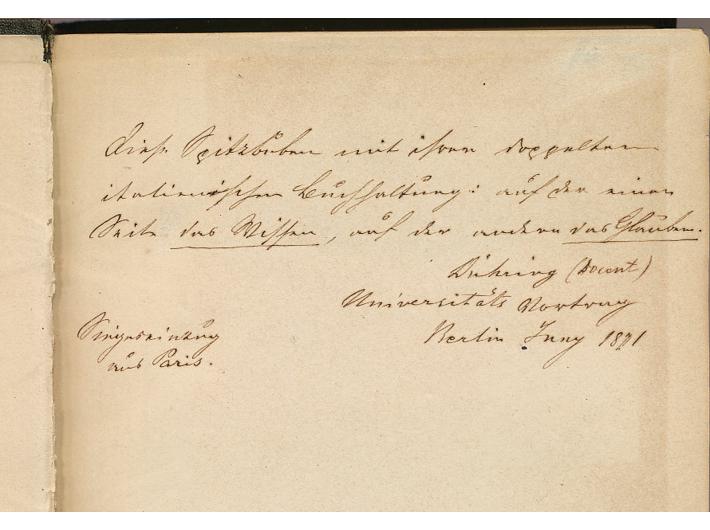 Diese Spitzbuben mit ihrer doppelten
italienischen Buchhaltung: auf der einen
Seite das Wissen, auf der andern das Glauben.
Dühring (Docent)
Universitäts Vortrag
Berlin Juny 1871
Siegeseinzug
aus Paris.